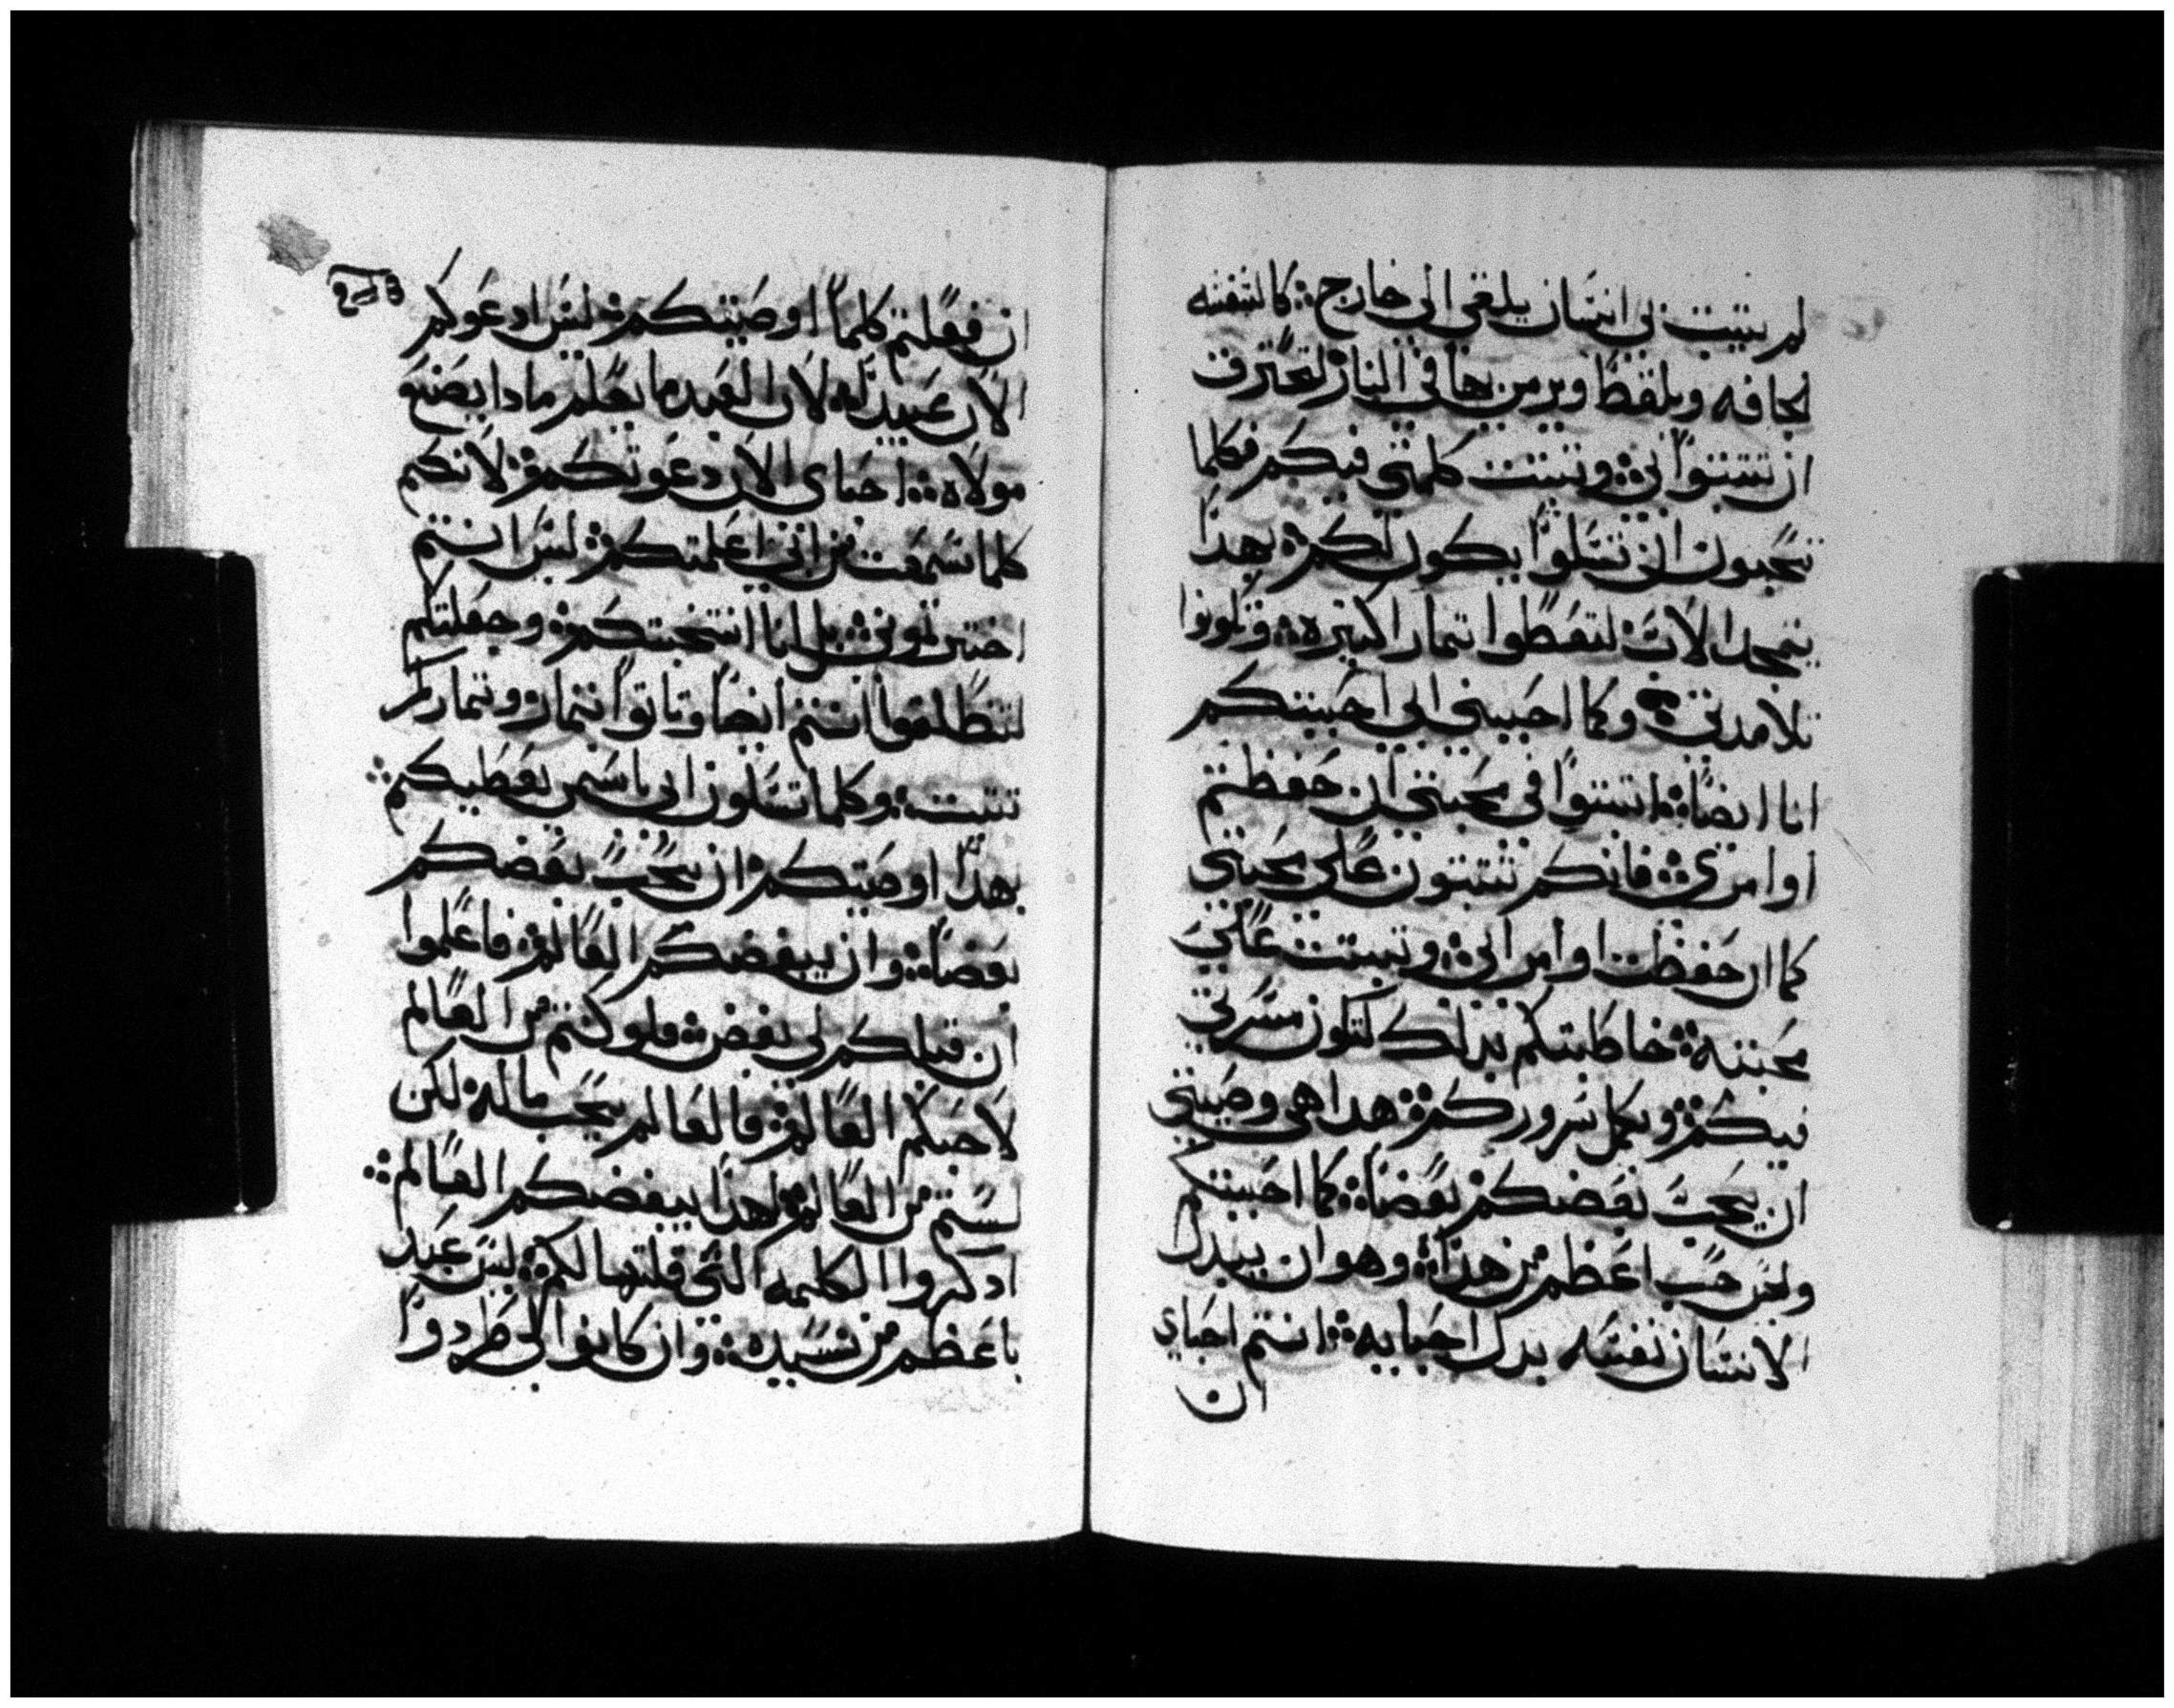 لم يتبت في انسان يلقي الى خارج كالسفنه
الجافه ويلقط ويرمن بها في النار لتحترق
ان تتبتوا في وتبتت كلمتي فيكم فكلما
تحبون ان تسلوا يكون لكم بهدا
يتمجد الاب لتعطوا تمارا كتيره وتكونوا
تلامدتي وكما احبيني ابي احببتكم
انا ايضا اتبتوا في محبتي ان حفظتم
اوامري فانكم تتبتون على محبتي
كما ان حفظت اوامر ابي وتبتت على
محبته خاطبتكم بدلك لتكون مسرتي
فيكم ويكمل سروركم هدا هي وصيتي
ان يحب بعضكم بعضا كما احببتكم
حب اعظم من هدا وهو ان يبدل
الانسان نفسه بدل احبايه انتم احباي
ان
ان فعلتم كلما اوصيتكم ليس ادعوكم
الان عبيد لان العبد ما يعلم مادا يصنع
مولاه احباي الان دعوتكم لانكم
كلما سمعت من ابي اعلمتكم ليس انتم
اخترتوني بل انا انتخبتكم وجعلتكم
لتنطلقوا انتم ايضا وتاتوا بتمار وتماركم
تتبت وكلما تسلون ابي باسمي يعطيكم
بهدا اوصيتكم ان يحب بعضكم
بعضا وان يبغضكم العالم فاعلموا
ان قبلكم لي بغض فلو كنتم من العالم
لاحبكم العالم فالعالم يحب ماله لكن
لستم من العالم لهدا يبغضكم العالم
ادكروا الكلمه التي قلتها لكم ليس عبد
باعظم من سيده وان كانوا لي طردوا